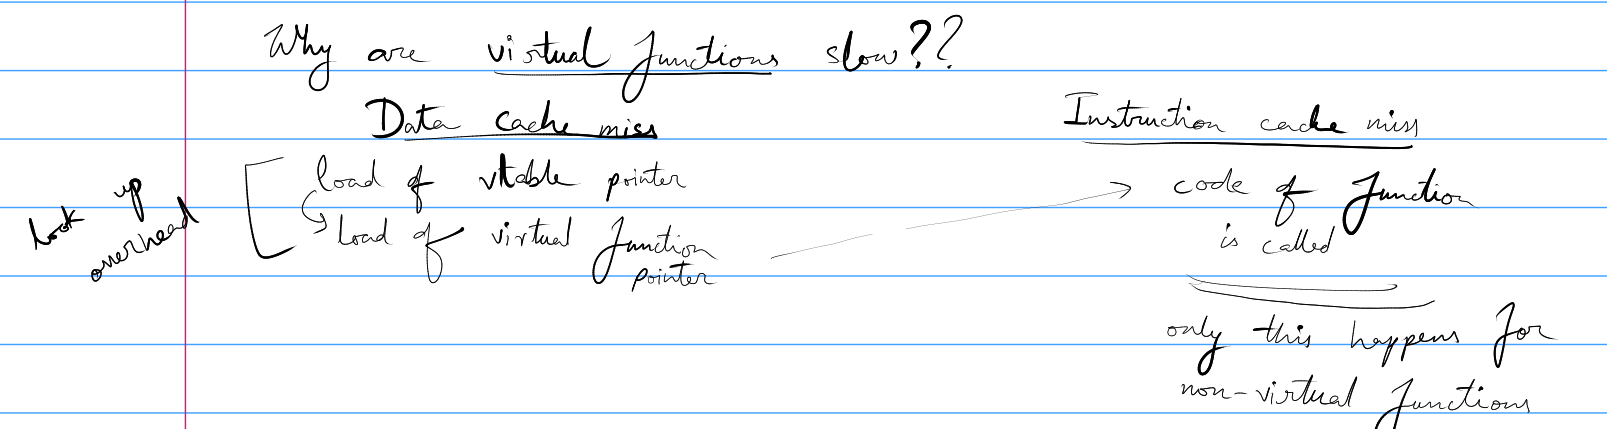 Why are virtual functions slow??
Data cache miss
Instruction cache miss
look up
overhead
load of vtable pointer
load of virtual function
pointer
code of function
is called
only this happens for
non-virtual functions